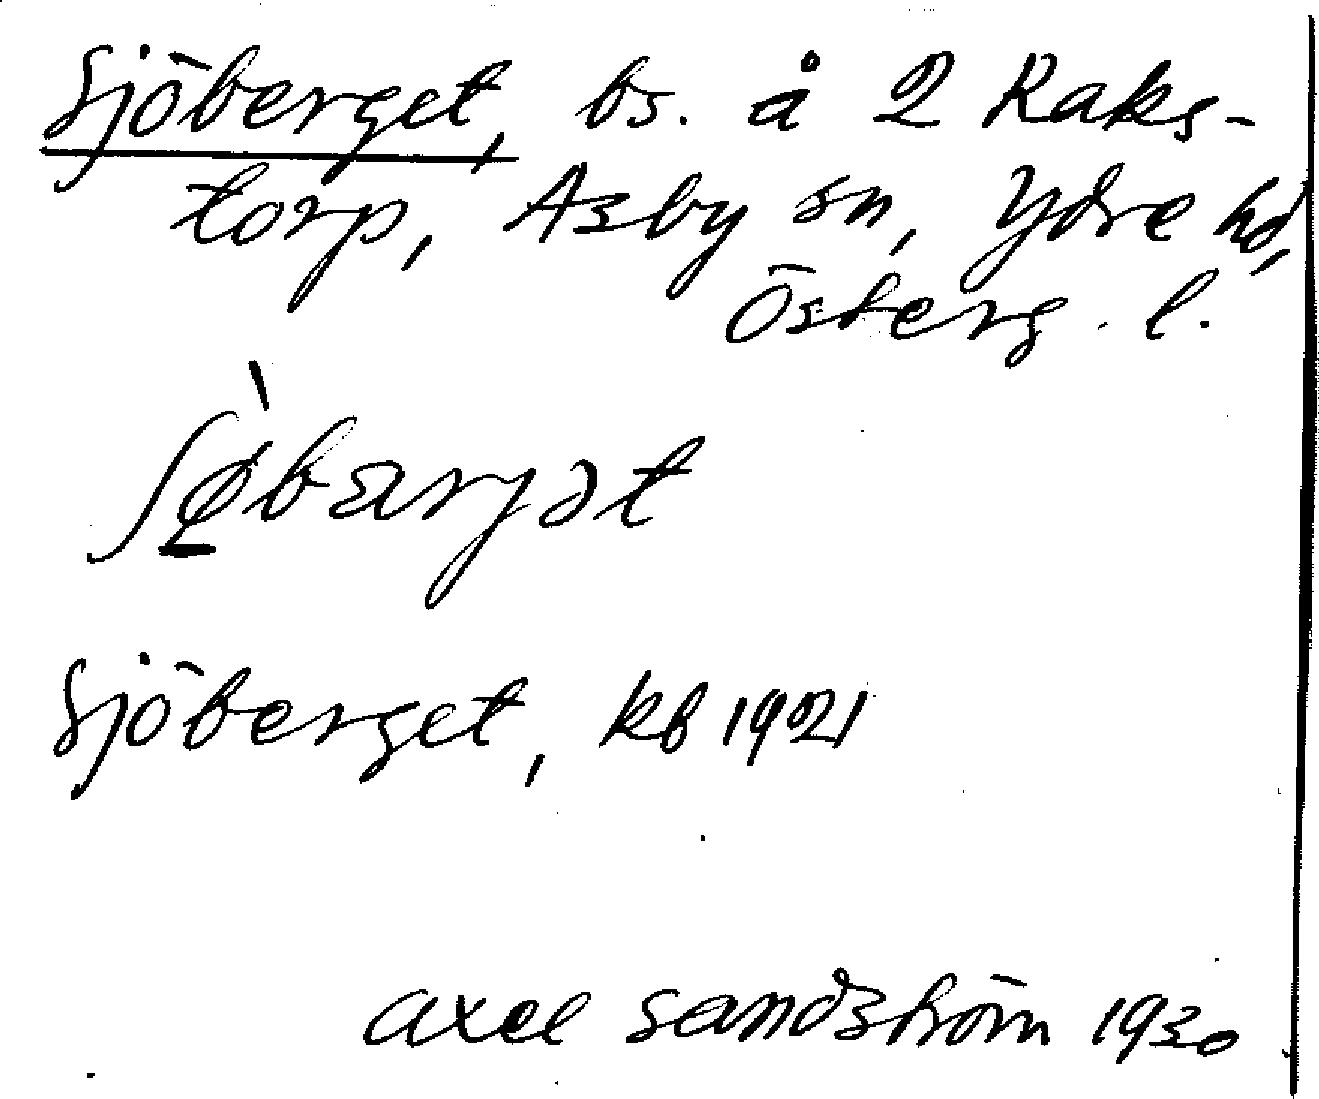 Sjöberget, bs. å 2 Raks-
torp, Asby sn, Ydre hd,
Österg. l.
ʃø̱̀bærjət
Sjöberget, kb 1921
Axel Sandström 1930